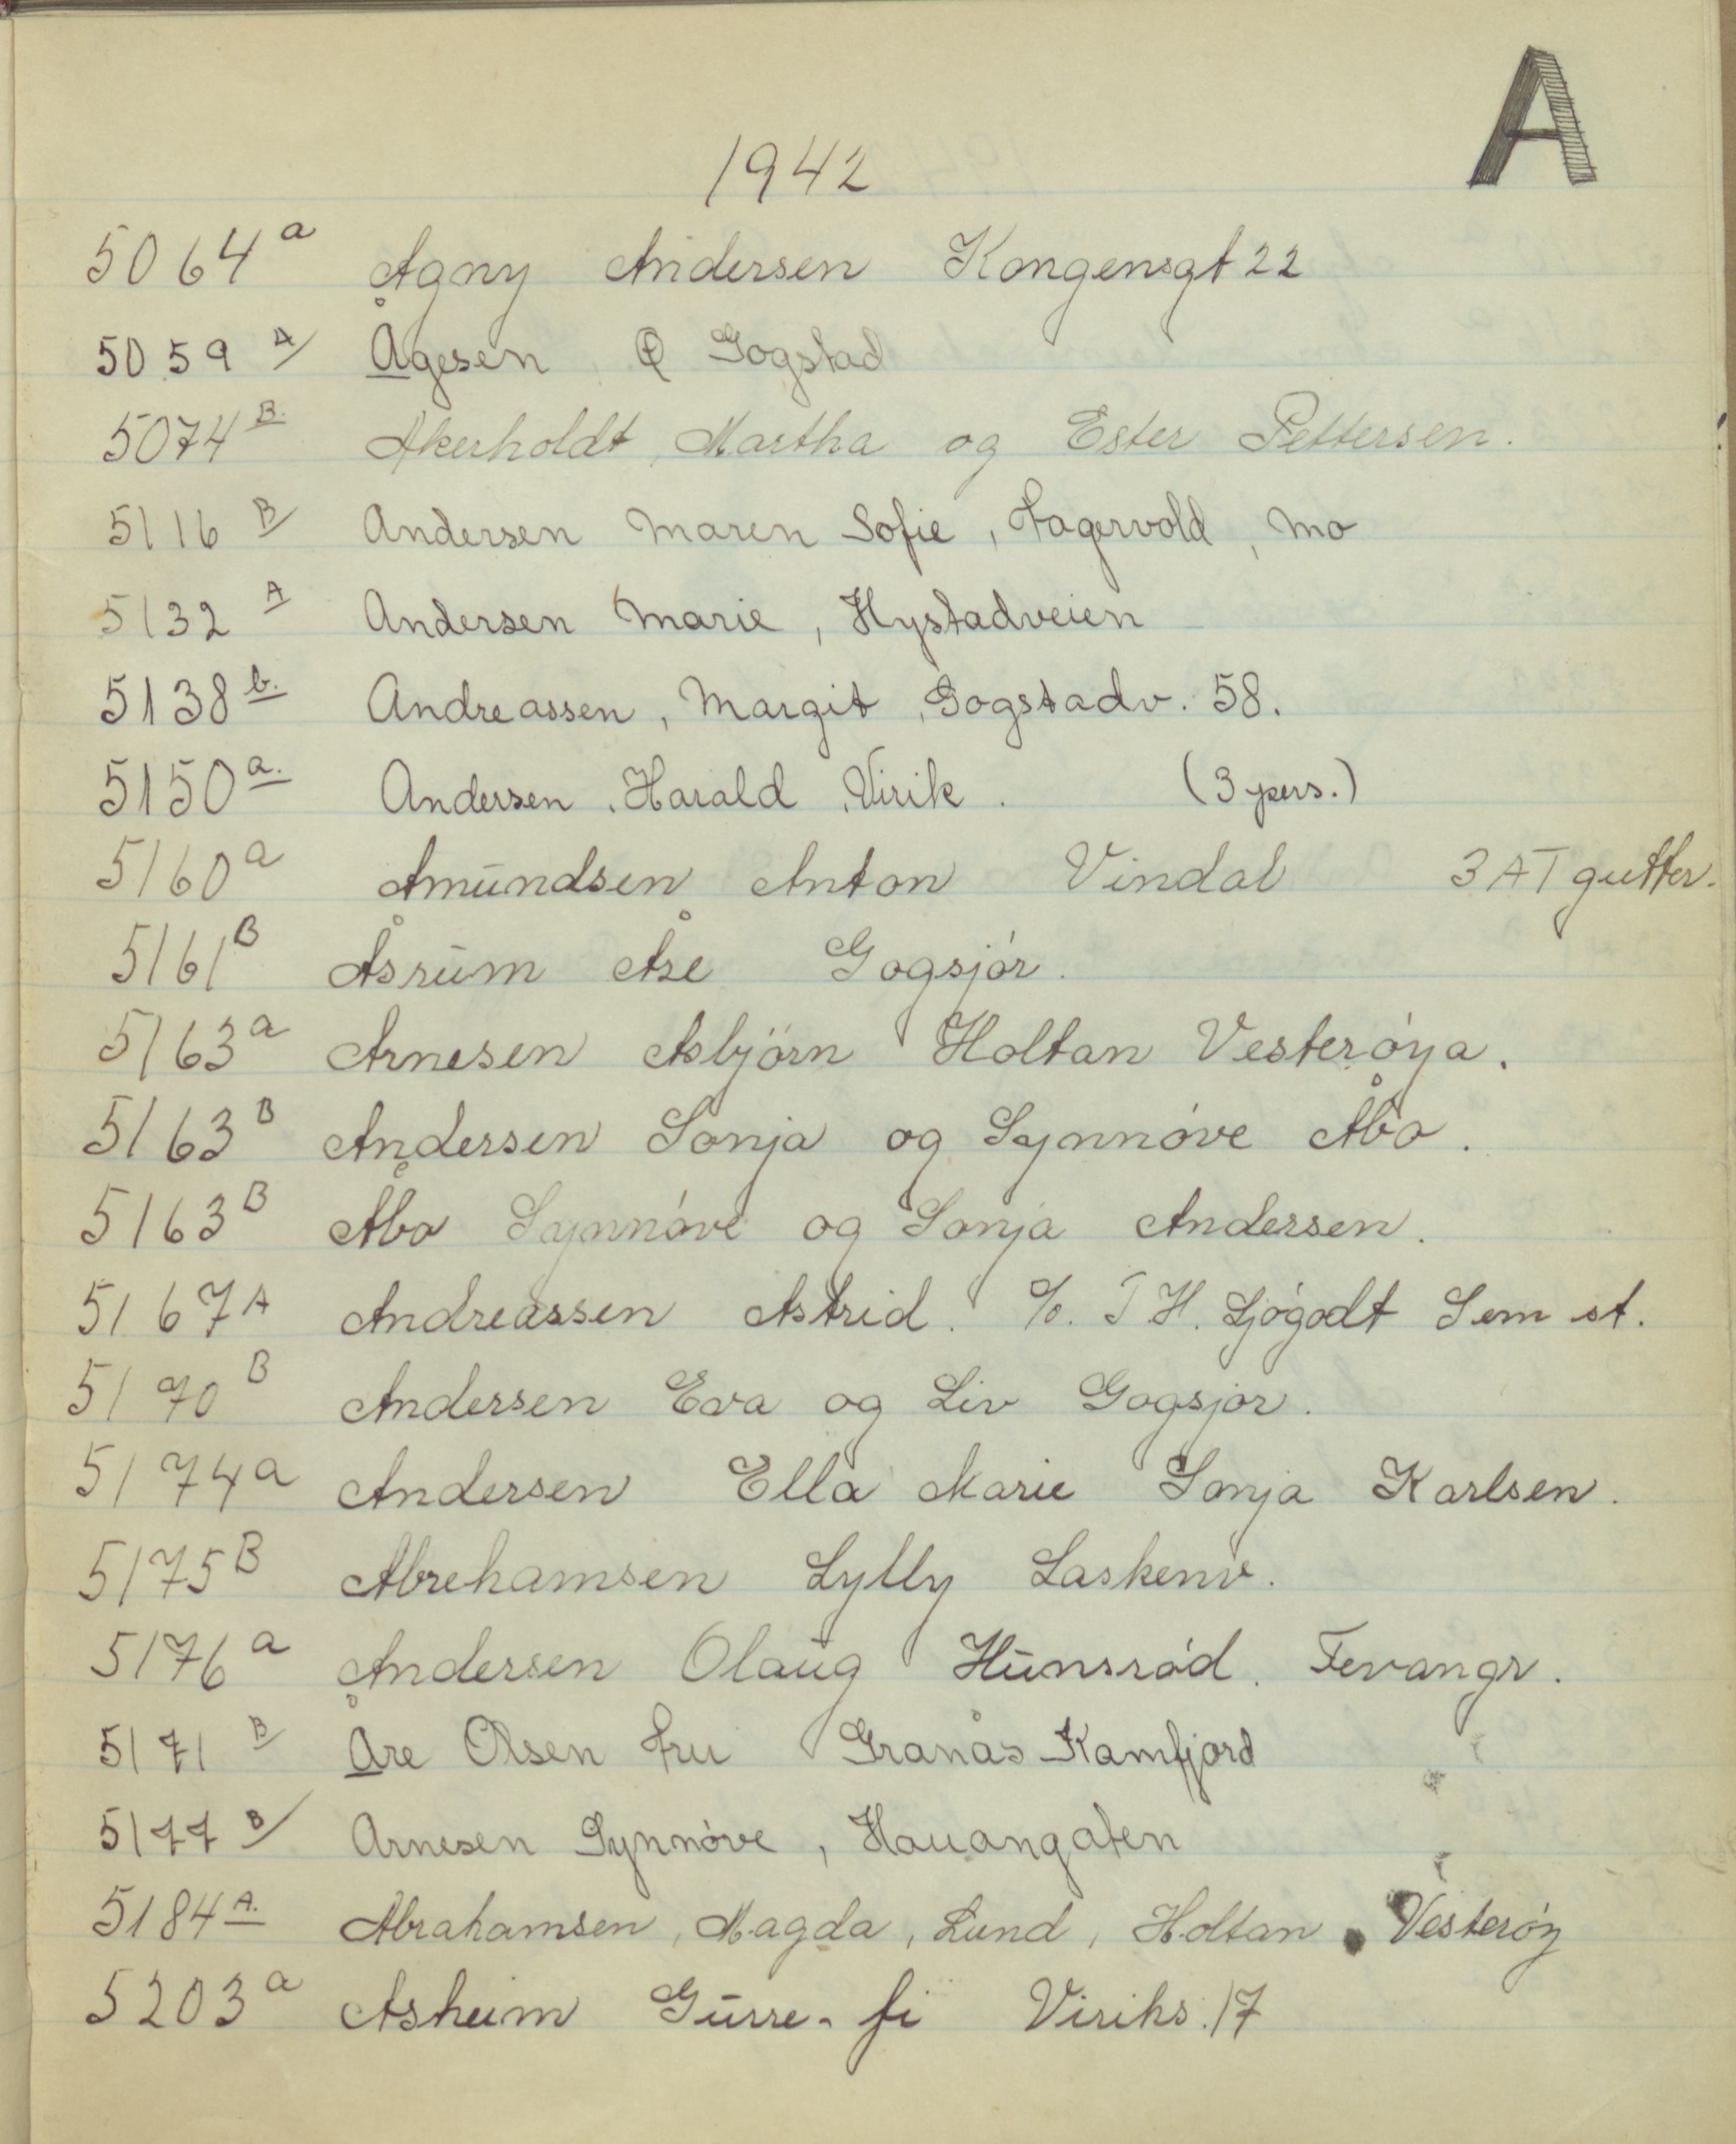 A
1942
5064a Agny Andersen Kongensgt 22
5059 A/ Ågesen Gogstad
5074 B. Akerholdt, Martha og Ester Pettersen.
5116 B/ Andersen Maren Sofie, Fagervold, Mo
5132 A Andersen Marie, Hystadveien
5138 b. Andreassen, Margit, Gogstadv. 58.
5150 a. Andersen, Harald, Virik. (3 pers.)
5160a Amundsen Anton Vindal 3 AT gutter.
5161B Åsrum Åse Gogsjór.
5163a Arnesen Asbjörn Holtan Vesteróya.
5163B Andersen Sonja og Synnóve Åbo.
5163B Åbo Synnóve og Sonja Andersen.
5167A Andreassen Astrid. %. T.H. Sjógodt Sem st.
5170B Andersen Eva og Liv Gogsjor.
5174a Andersen Ella Marie Sonja Karlsen.
5175B Abrehamsen Lylly Laskenv.
5176a Andersen Olaug Hunsród. Fevangr.
5171 B/ Åre Olsen Fru Granås Kamfjord
5177 B/ Arnesen Synnóve, Hauangaten
5184 A. Abrahamsen, Magda, Lund, Holtan Vesteröy
5203a Asheim Gurre-fi Viriks. 17